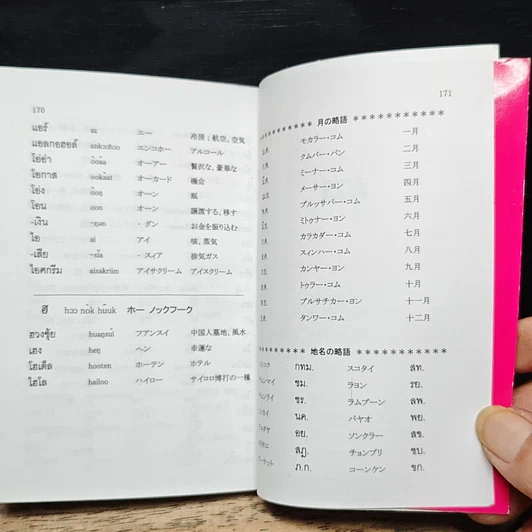 170
แอร์ ai エー 冷房;航空、空気
แอลกอฮอล์ アルコール
โอ่อ่า オーアー 贅沢な、豪華な
โอกาส オーカード 機会
โอ่ง オーン 瓶
โอน oon オーン 譲渡する、移す
-เงิน -ŋən -グン お金を振り込む
ไอ ai アイ 咳、蒸気
-เสีย -sĭa -スィア 排気ガス
ไอศกรีม aisakriim アイサクリーム アイスクリーム
ฮ hɔɔ nók hûuk ホー ノックフーク
ฮวงซุ้ย フアンスイ 中国人墓地、風水
เฮง heŋ ヘン 幸運な
โฮเต็ล hooten ホーテン ホテル
ไฮโล hailoo ハイロー サイコロ博打の一種
171
********* 月の略語 ***********
モカラー・コム 一月
クムパー・パン 二月
ミーナー・コム 三月
メーサー・ヨン 四月
プルッサパー・コム 五月
ミトゥナー・ヨン 六月
カラカダー・コム 七月
スィンハー・コム 八月
カンヤー・ヨン 九月
トゥラー・コム 十月
プルサチカー・ヨン 十一月
タンワー・コム 十二月
******** 地名の略語 ***********
กทม. スコタイ สท.
ชม. ラヨン รย.
ชร. ラムプーン ลพ.
นค. パヤオ พย.
อย. ソンクラー สข.
สฎ. チョンブリ ชบ.
ภ.ก. コーンケン ขก.